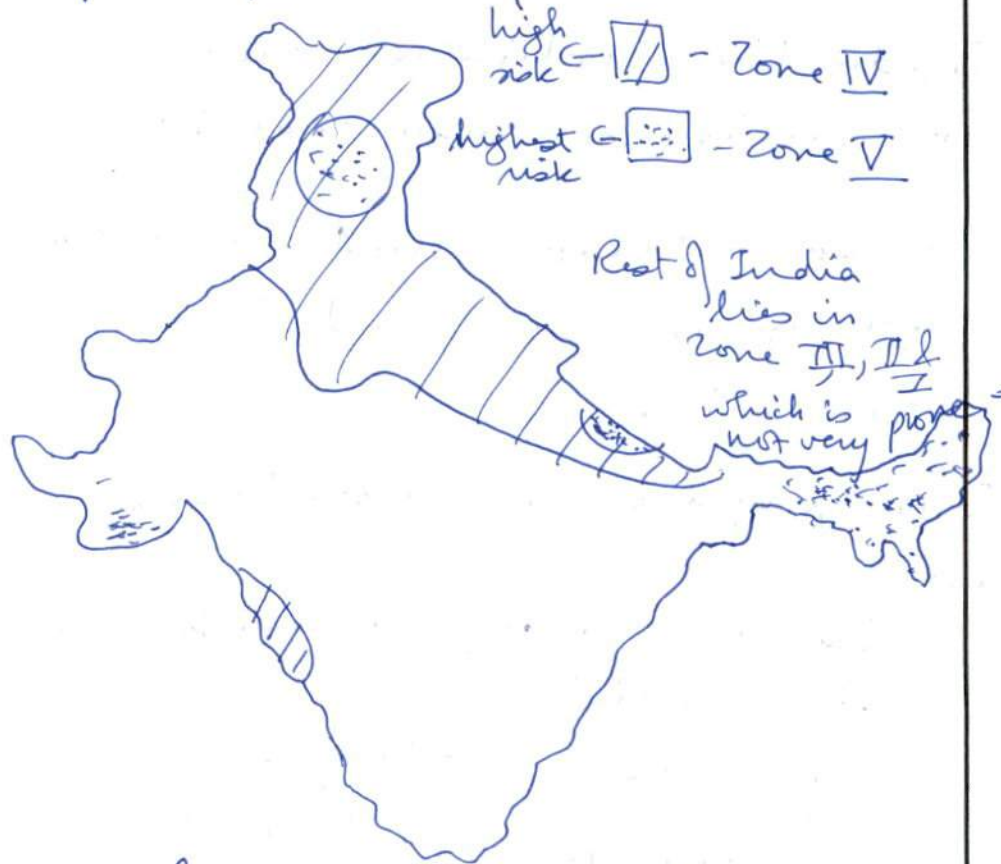 high
risk ← - Zone IV
highest ← - Zone V
risk
Rest of India
lies in
zone III, II &
I
which is
not very prone